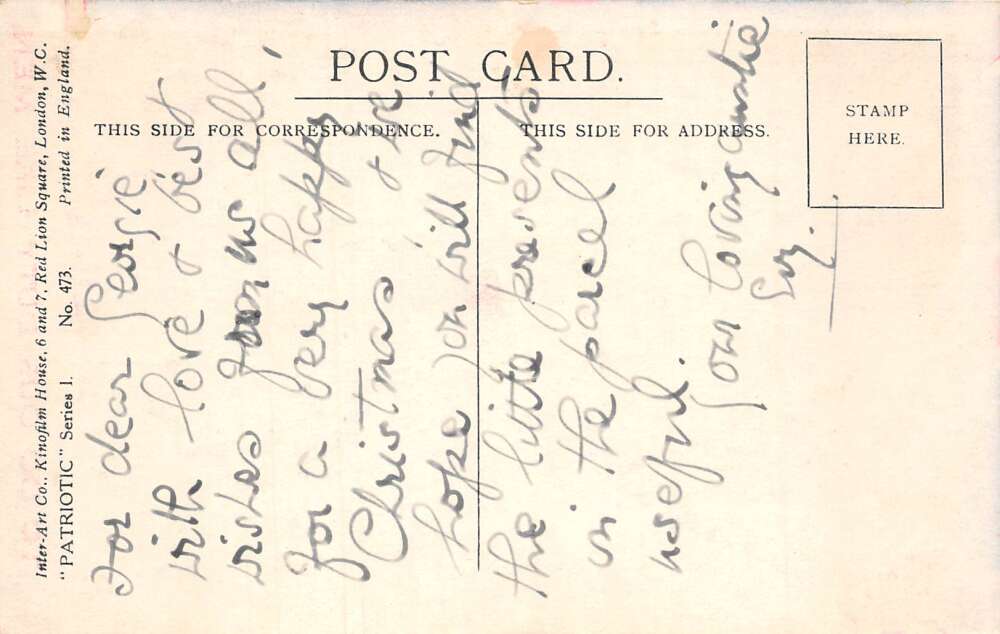 POST CARD.
THIS SIDE FOR CORRESPONDENCE.
THIS SIDE FOR ADDRESS.
STAMP
HERE.
Inter-Art Co., Kinofilm House, 6 and 7, Red Lion Square, London, W.C.
"PATRIOTIC" Series 1. No. 473. Printed in England.
For dear Georgie
with love & best
wishes from us all,
for a very happy
Christmas & we
hope you will find
the little presents
in the parcel
useful.
Your loving auntie